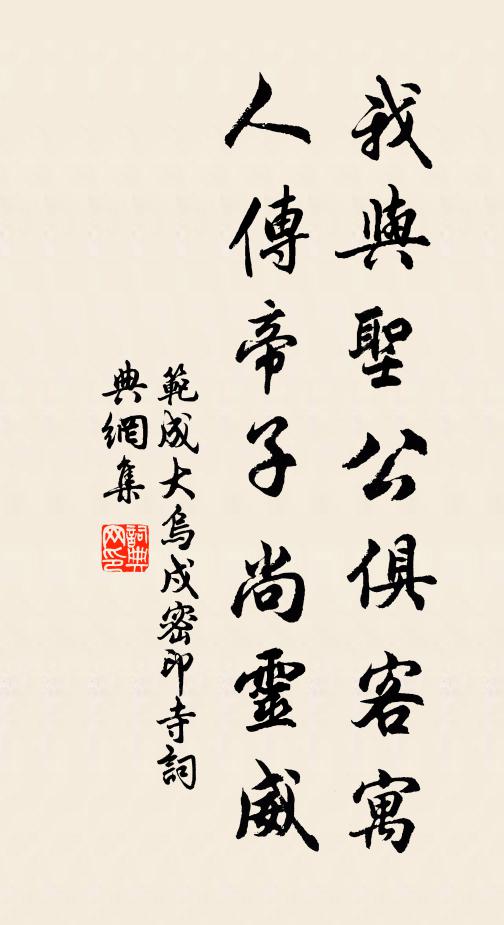 我與聖公俱客寓
人傳帝子尚靈威
範成大烏戍密印寺詞
典網集
詞典網印